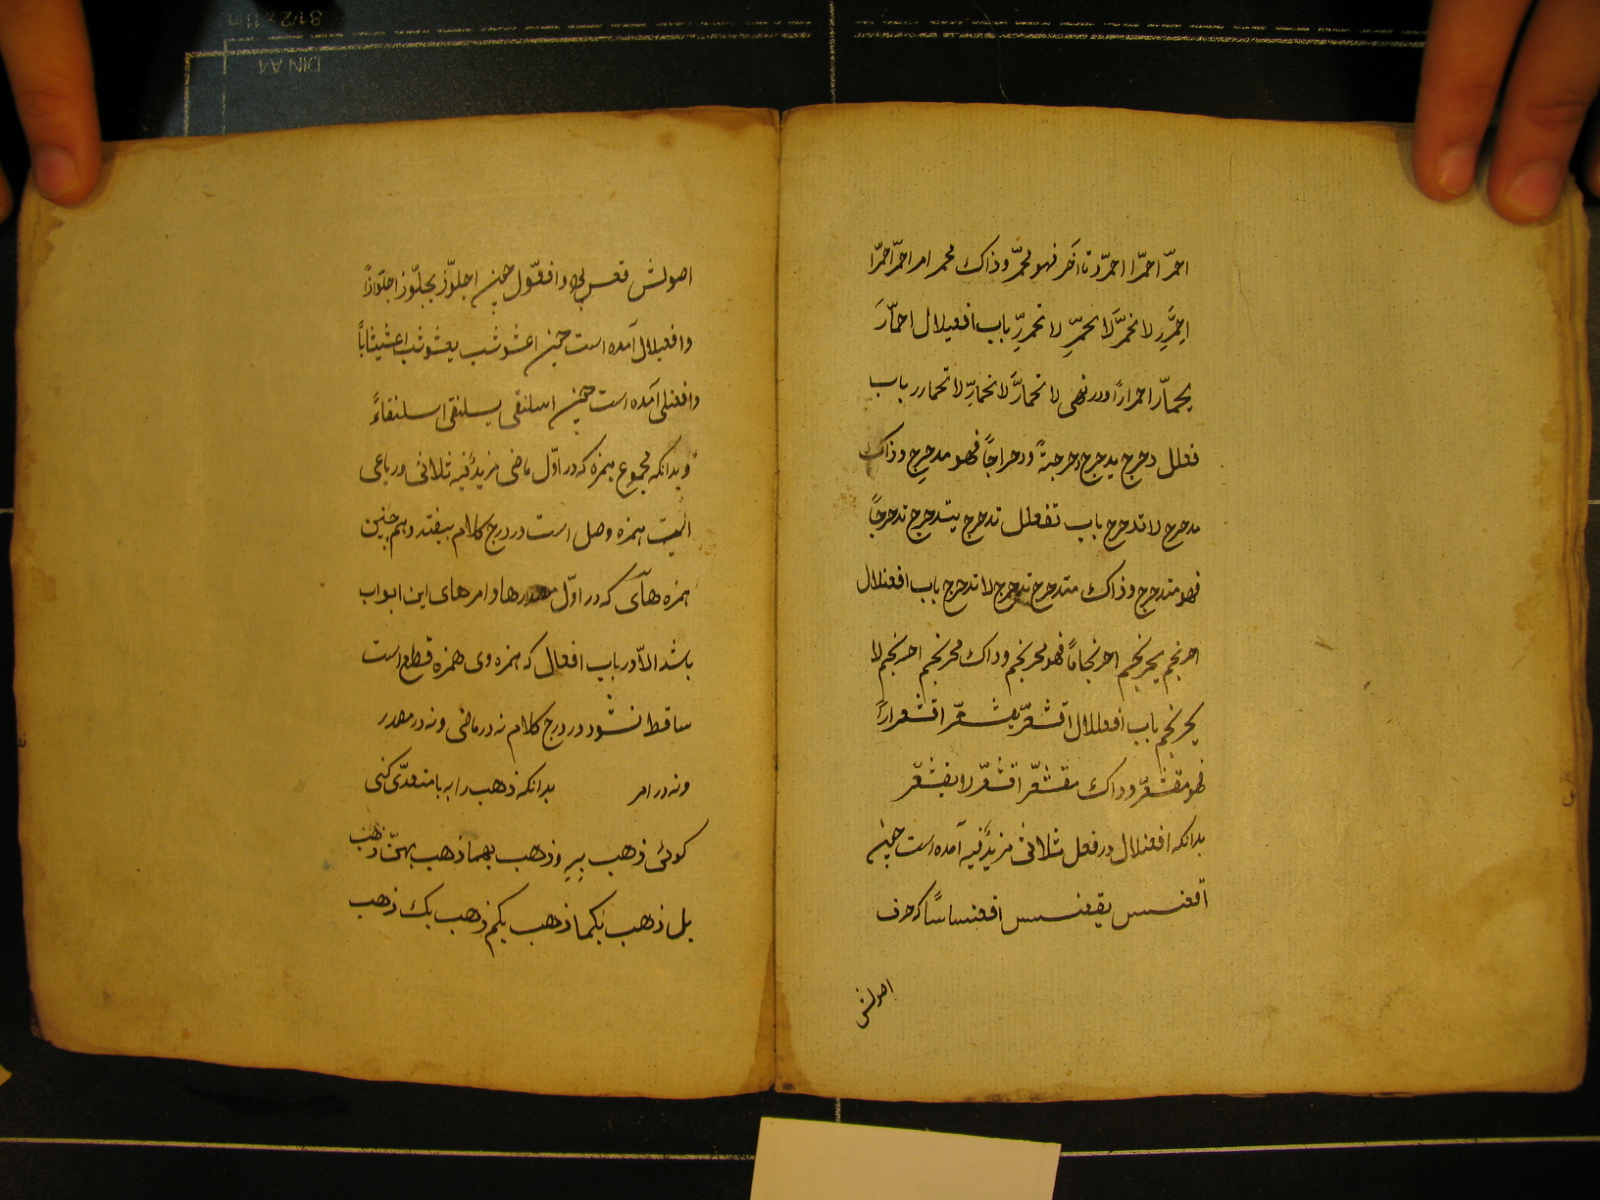 احمرّ احمرّا احمرّوا تا آخر فهو محمرّ وذاك محمر امر احمرّ احمرّا
احمرِر لا تحمرَّ لا تحمرِّ لا تحمرِر باب افعیلال احمارّ
یحمارّ احمرارًا ودر نهی لا تحمارَّ لا تحمارِّ لا تحمارر باب
فعلل دحرج یدحرج دحرجةً ودحراجًا فهو مدحرج وذاك
مدحرج لا تدحرج باب تفعلل تدحرج یتدحرج تدحرجًا
فهو متدحرج وذاك متدحرج تدحرج لا تدحرج باب افعنلال
احرنجم یحرنجم احرنجامًا فهو محرنجم وذاك محرنجم احرنجم لا
یحرنجم باب افعللال اقشعرّ یقشعرّ اقشعرارًا
فهو مقشعرّ وذاك مقشعرّ اقشعرّ لا یقشعرّ
بدانکه افعنلال در فعل ثلاثی مزیدٌ فیه آمده است چنین
اقعنسس یقعنسس اقعنساسًا که حرف
اصولش
اصولش قعس وافعوّل چنین اجلوّز یجلوّز اجلوّازًا
وافعیلال آمده است چنین اعشوشب یعشوشب اعشیشابًا
وافعنلی آمده است چنین اسلنقی یسلنقی اسلنقاءً
وبدانکه مجموع همزه که در اوّل ماضی مزیدٌ فیه ثلاثی ورباعی
است همزه وصل است در درج کلام بیفتد وهم چنین
همزه هائی که در اوّل مصدرها وامرهای این ابواب
باشد الاّ در باب افعال که همزه وی همزه قطع است
ساقط نشود در درج کلام نه در ماضی ونه در مصدر
ونه در امر بدانکه ذهب را به با متعدّی کنی
کوئی ذهب بهِ وذهب بهما ذهب بهنّ ذهب
بك ذهب بکما ذهب بکم ذهب بك ذهب